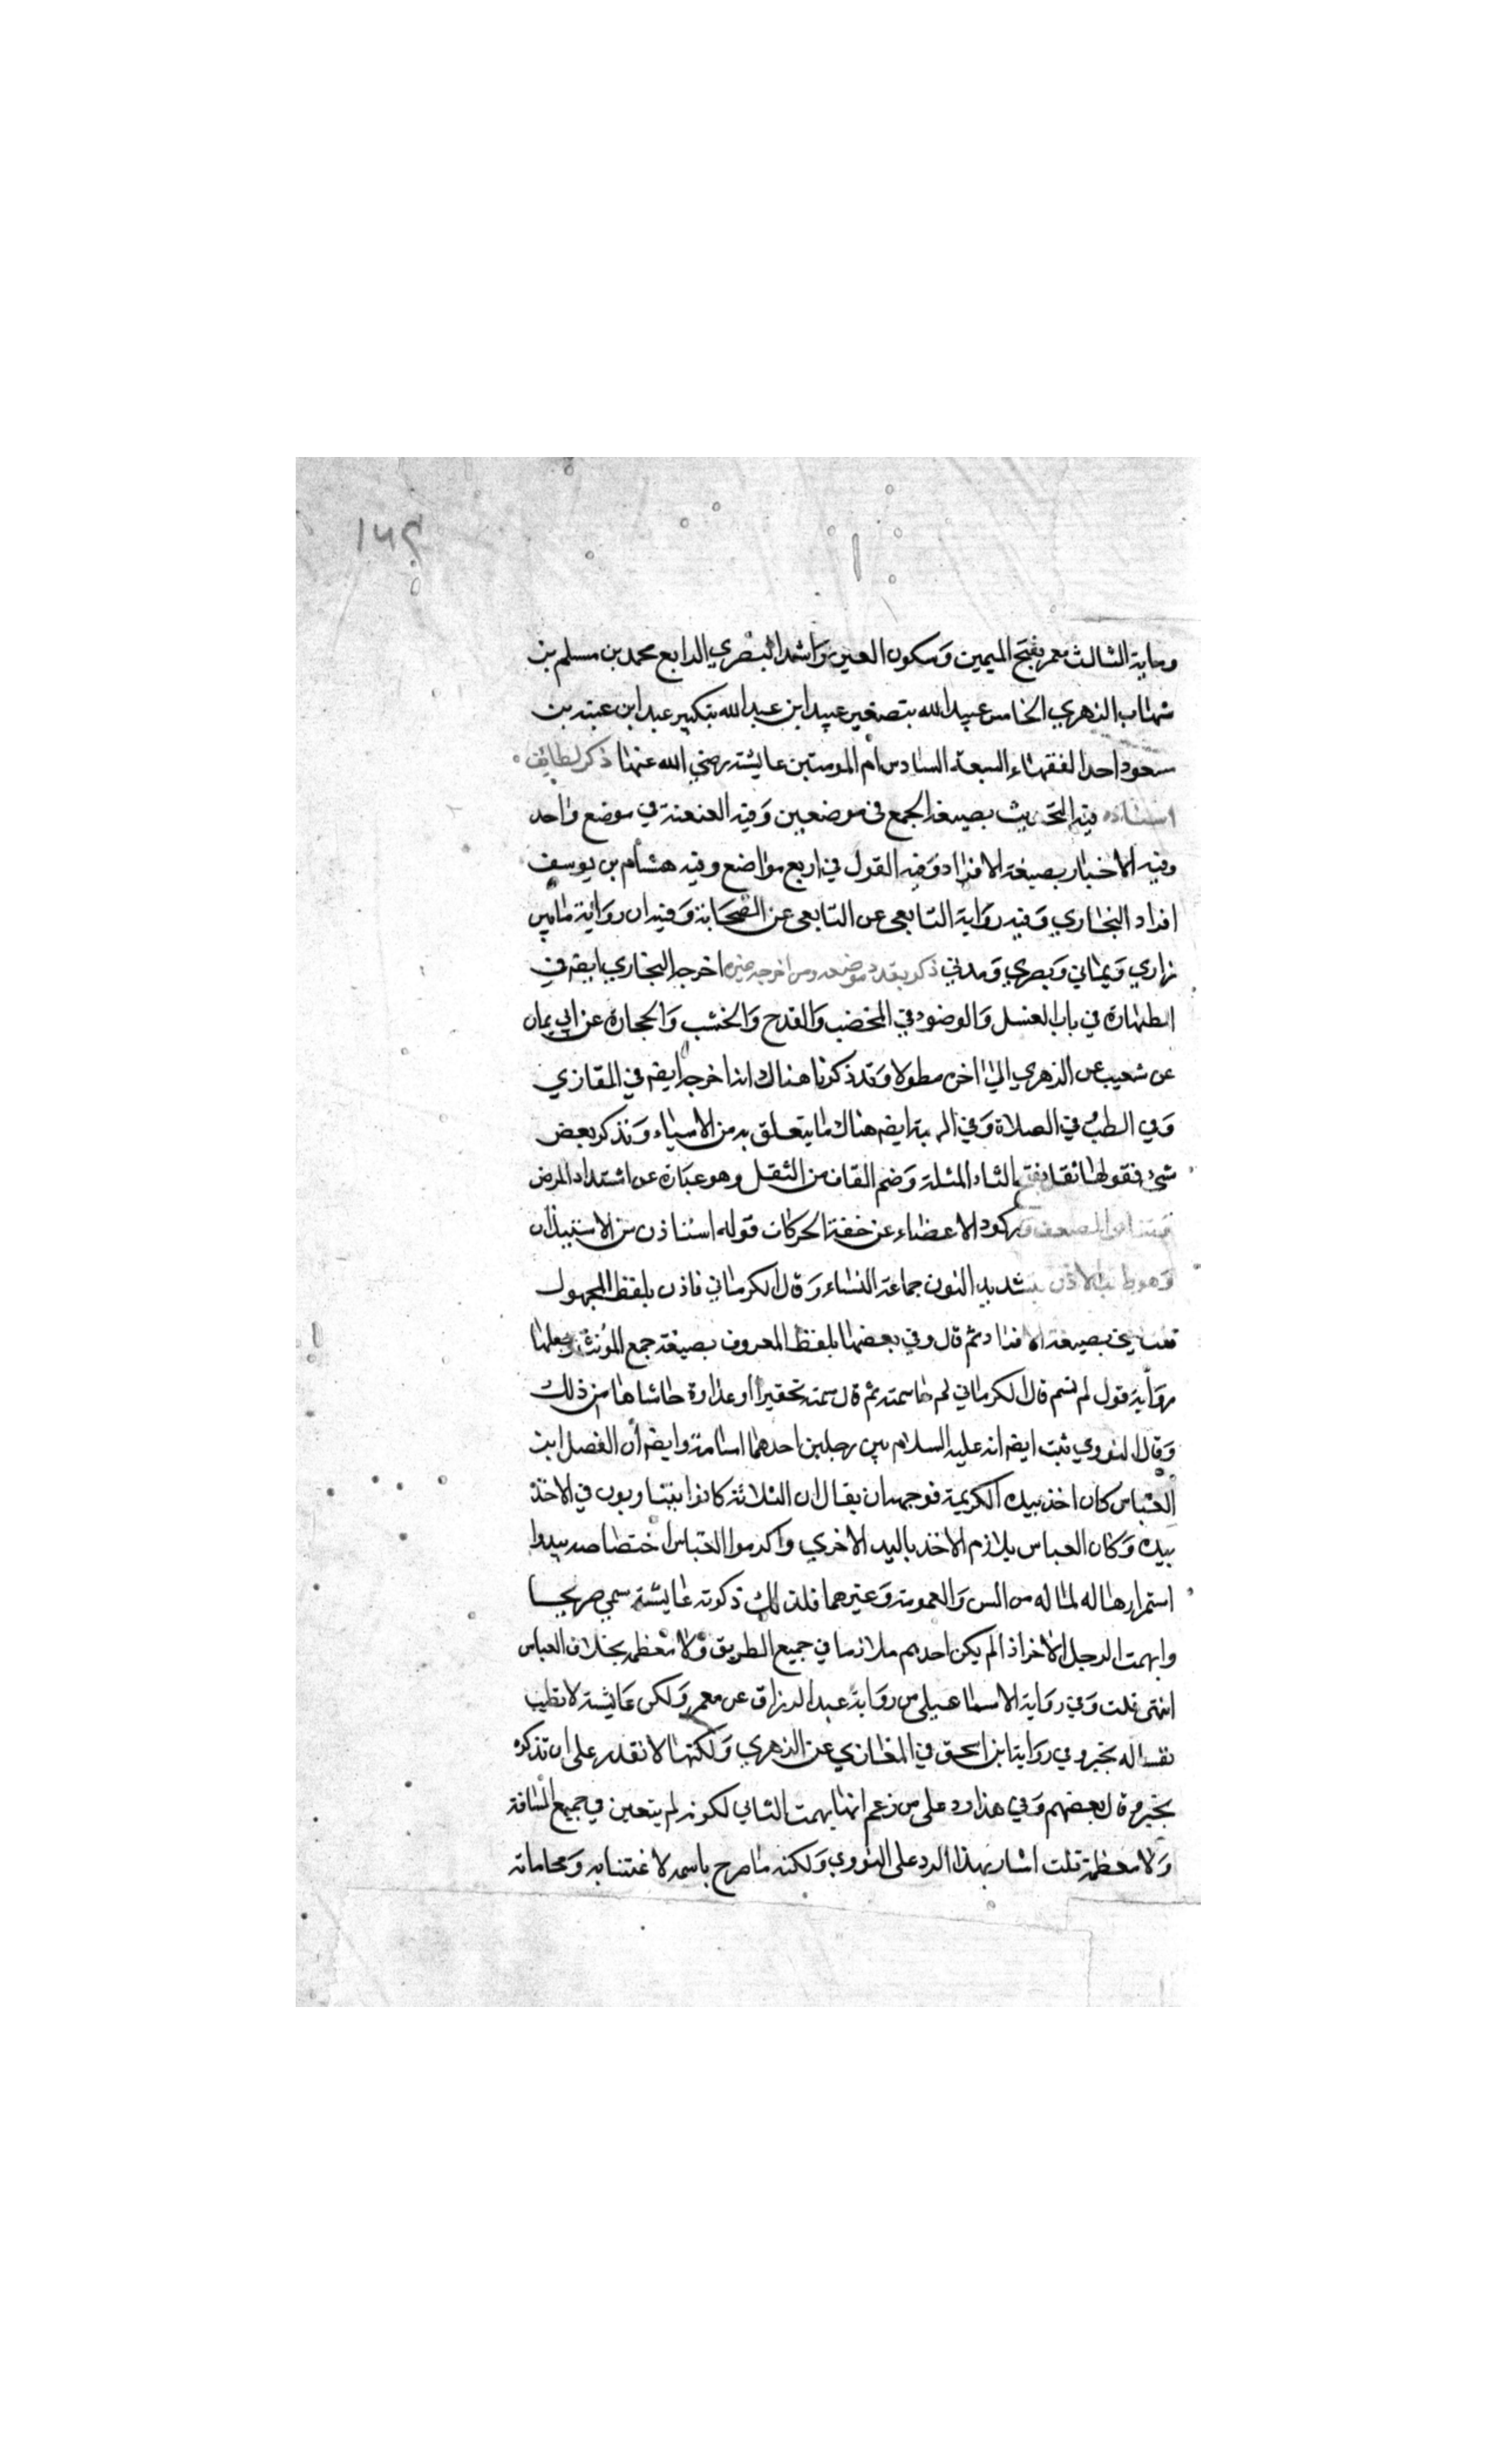 ١٥٩
وماية الثالث معمر بفتح الميمين وسكون العين وراشد البصري الرابع محمد بن مسلم بن
شهاب الزهري الخامس عبيد الله بتصغير عبيد ابن عبد الله بتكبير عبد ابن عتبه بن
سعود احد الفقهاء السبعة السادس ام المومنين عايشة رضي الله عنها ذكر لطايف
اسناده فيه التحديث بصيغة الجمع في موضعين وفيه العنعنة في موضع واحد
وفيه الاخبار بصيغة الافراد وفيه القول في اربع مواضع وفيه هشام بن يوسف
افراد البخاري وفيه رواية التابعي عن التابعي عن الصحابة وفيه ان رواية مابين
رازي ويماني وبصري ومدني ذكر بعدد موضعه ومن اخرجه غيره اخرجه البخاري ايضه في
الطهارة في باب الغسل والوضوء في المخضب والقدح والخشب والحجارة عن ابي يمان
عن شعيب عن الزهري الي اخره مطولا وقد ذكرنا هناك انه اخرجه ايضه في المقازي
وفي الطب في الصلاة وفي ايضه هناك ما يتعلق به من الاسياء ونذكر بعض
شئ فقولها ثقل بفتح الثاء المثلة وضم القاف من الثقل وهو عبارة عن اشتداد المرض
الضعف وركود الاعضاء عن خفة الحركات قوله استاذن من الاستيذان
وهو طلب الاذن بتشديد النون جماعة النساء وقال الكرماني فاذن بلفظ المجهول
بصيغة الافراد ثم قال وفي بعضها بلفظ المعروف بصيغة جمع المونث وجعلها
رواية قول لم تسم قال الكرماني لم ما سمته ثم قال سمته تحقيرا او عداوة حاشاها من ذلك
وقال النووي ثبت ايضه انه عليه السلام بين رجلين احدهما اسامة وايضه ان الفصل ابن
العباس كان اخذ بيده الكريمة فوجهه ان يقال ان الثلاثة كانوا يتناوبون في الاخذ
بيده وكان العباس يلازم الاخذ باليد الاخري واكرموا العباس اختصاصه بيدوا
استمرارها له لما له من السن والعمومة وغيرهما فلذلك ذكرته عايشة سمي صريحا
وابهمت الرجل الاخر اذ الم يكن احدهم ملازما في جميع الطريق ولا معظمه بخلاف العباس
انتهى قلت وفي رواية الاسماعيلي من رواية عبد الرزاق عن معمر ولكن عايشة لا تطيب
نفسا له بخير وفي رواية ابن اسحق في المغازي عن الزهري ولكنها لا تقدر على ان تذكره
بخير وقال بعضهم وفي هذا رد على من زعم انها ابهمت الثاني لكونه لم يتعين في جميع المسافة
ولا معظمه قلت اشار بهذا الرد على النووي ولكنه ما صرح باسمه لاعتنا به ومحاماته